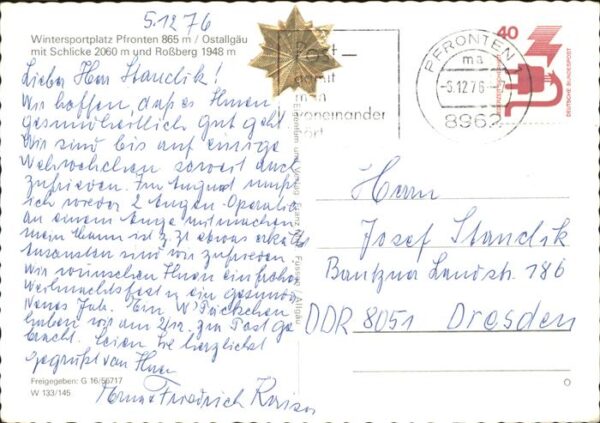 5.12.76
Wintersportplatz Pfronten 865 m / Ostallgäu
mit Schlicke 2060 m und Roßberg 1948 m
Lieber Herr Standik!
Wir hoffen, daß es Ihnen
gesundheitlich gut geht
Wir sind bis auf einige
Wehwehchen soweit auch
zufrieden. Im August mußte
ich wieder 2 Augen-Operation
an einem Auge mitmachen
mein Mann ist z. Zt etwas erkältet
Ansonsten sind wir zufrieden
Wir wünschen Ihnen ein frohes
Weihnachtsfest u ein gesundes
Neues Jahr. Ein W Päckchen
haben wir am 2/12. zur Post ge
bracht. Seien Sie herzlichst
gegrüßt von Ihren
Friedrich
Freigegeben: G 16/56717
W 133/145
Eigentum und Verlag
Füssen / Allgäu
Post—
damit
man
voneinander
hört
PFRONTEN
ma
-5.12.76-
8962
40
DEUTSCHE BUNDESPOST
Herrn
Josef Standik
Bautzner Landstr. 186
DDR 8051 Dresden